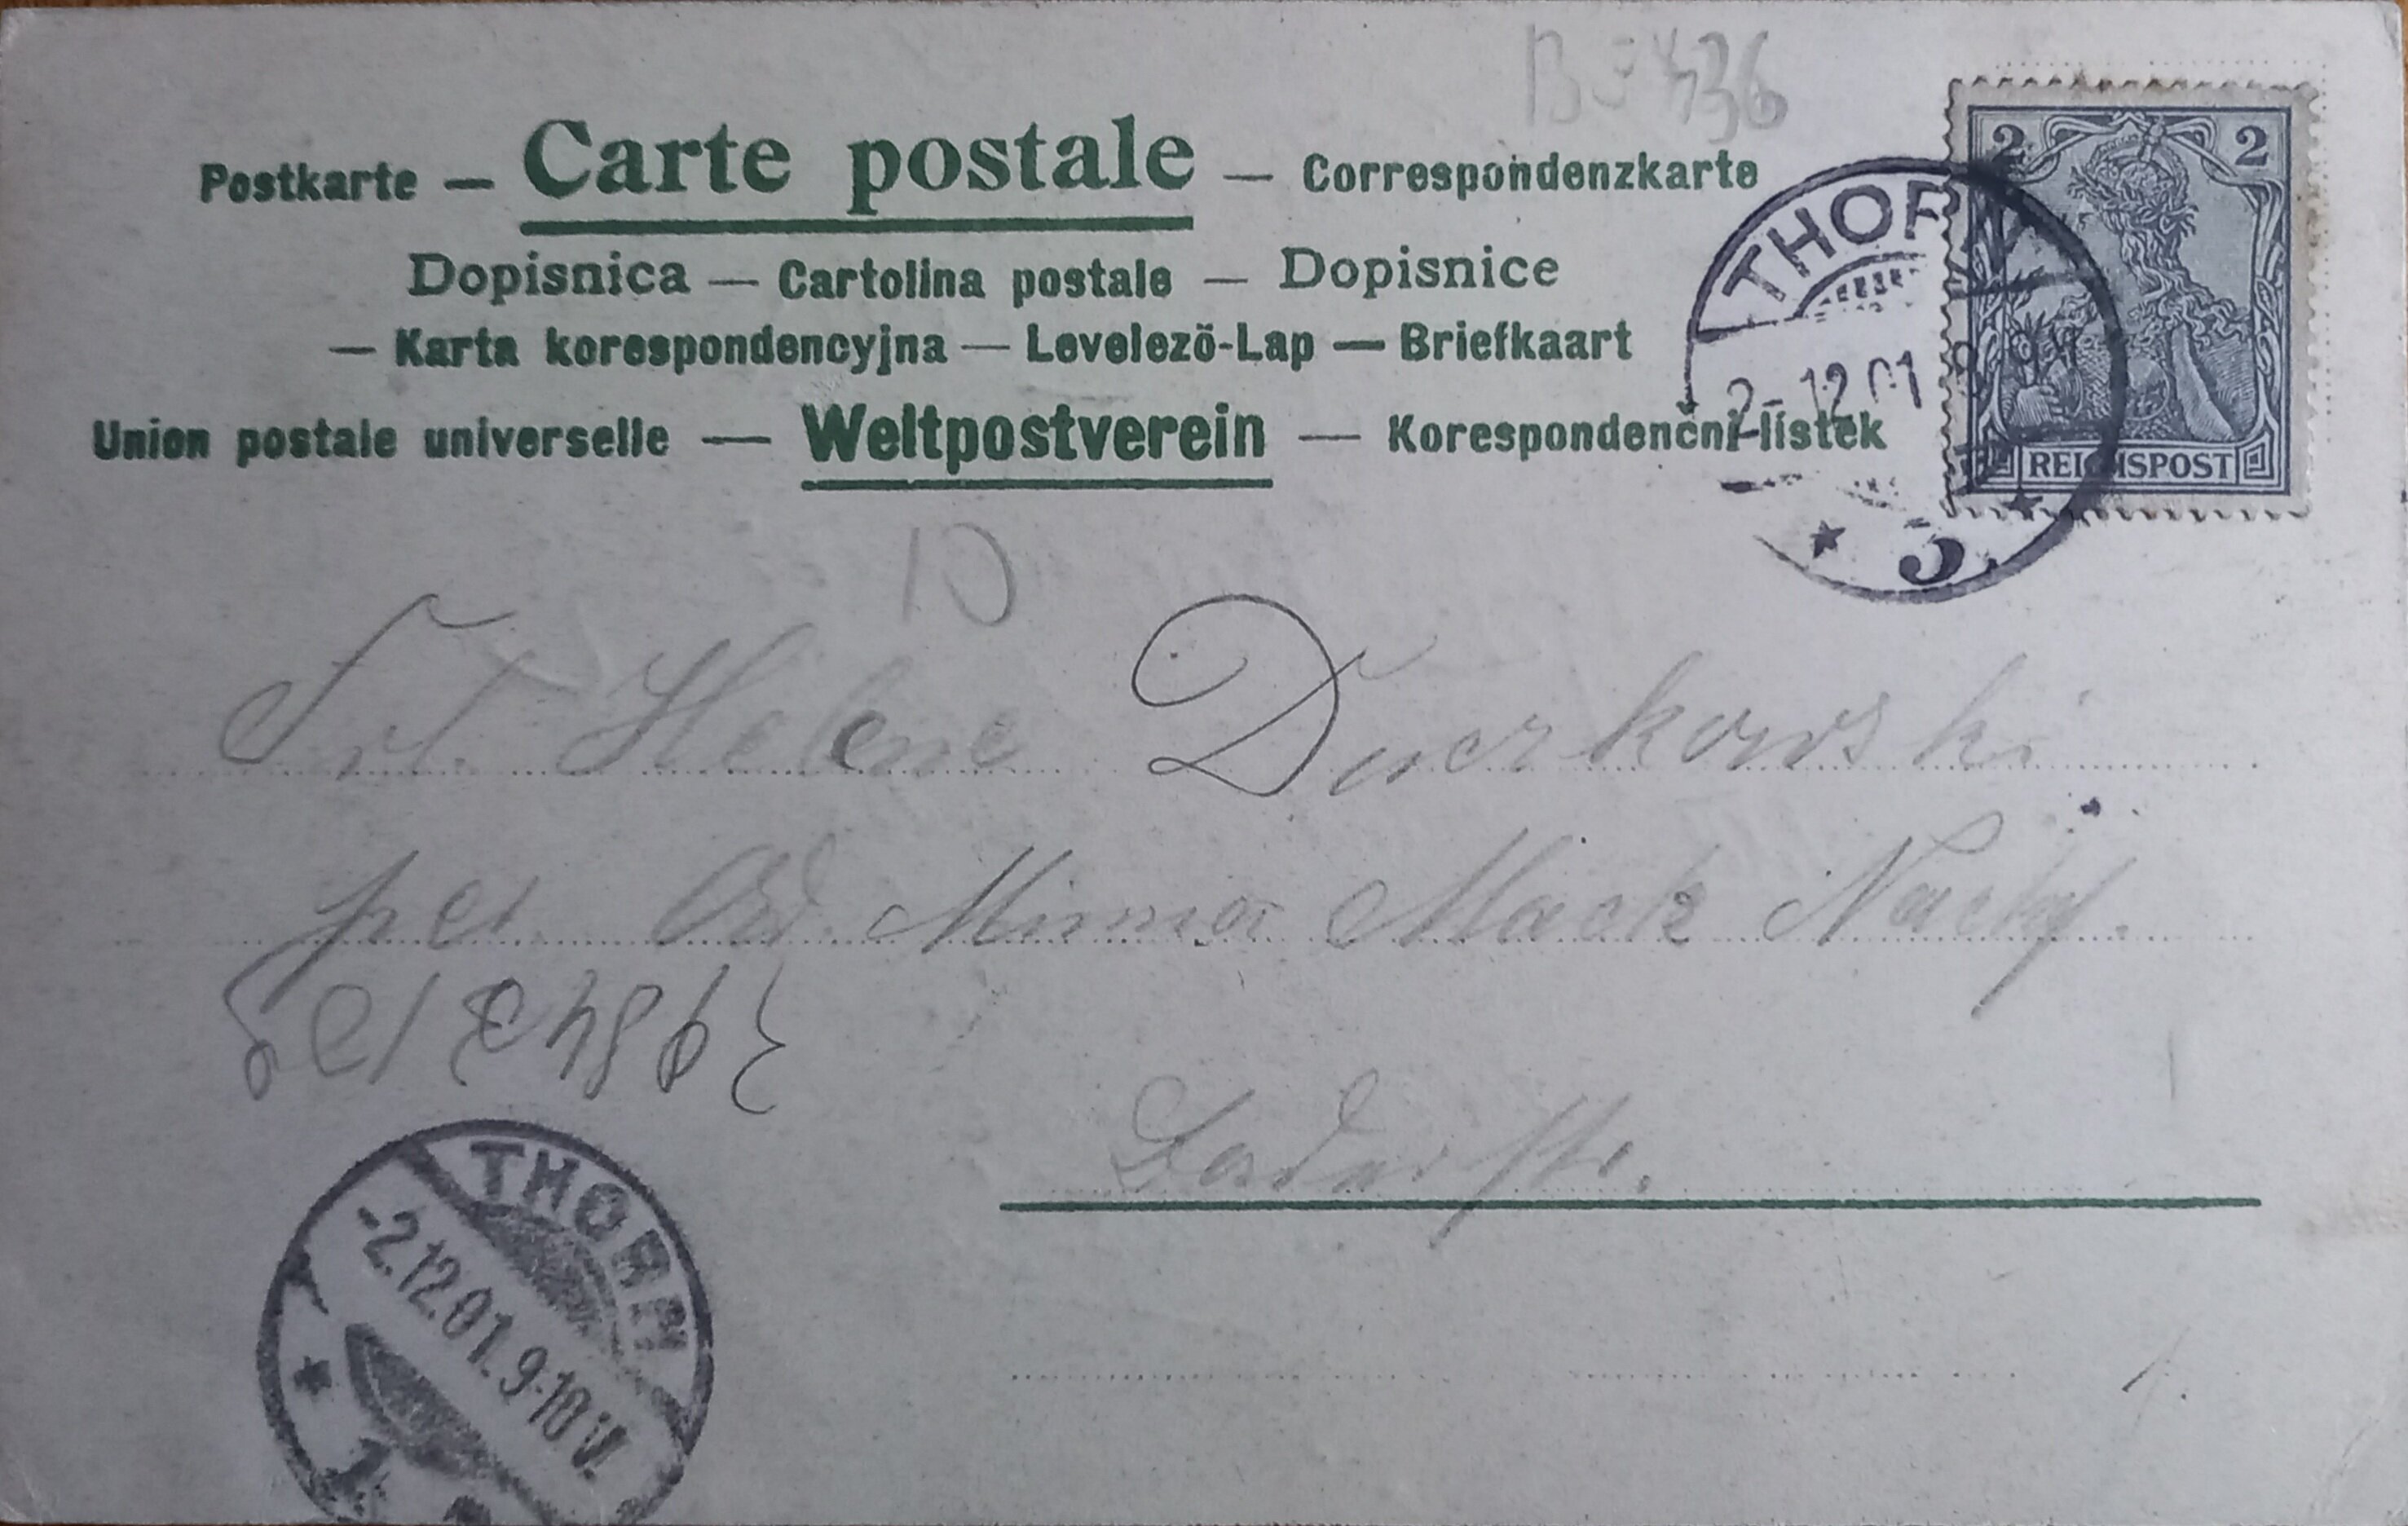 Postkarte — Carte postale — Correspondenzkarte
Dopisnica — Cartolina postale — Dopisnice
— Karta korespondencyjna — Levelező-Lap — Briefkaart
Union postale universelle — Weltpostverein — Korespondenční-lístek
2 2
REICHSPOST
THORN
2.12.01
3
10
Frl. Helene
per Ad. Minna Mack Nachf.
THORN
-2.12.01.9-10V.
1